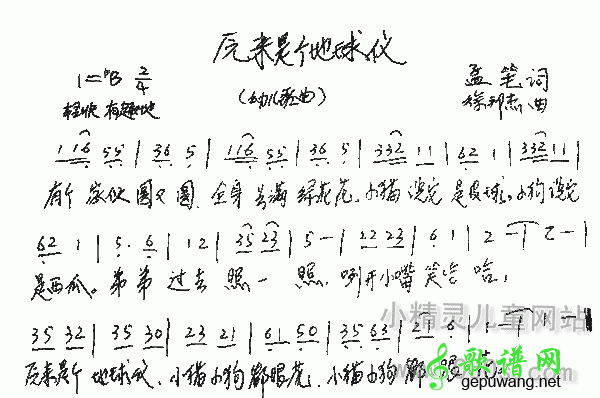 原来是个地球仪
1=ᵇB 2/4
孟笔词
(幼儿歌曲)
轻快 有趣地
徐邦杰 曲
116 55 | 36 5 | 116 55 | 36 5 | 332 11 | 62 1 | 332 11 |
有个家伙圆又圆,全身长满绿花花。小猫说它是皮球。小狗说它
62 1 | 5. 6 | 1 2 | 35 23 | 5 — | 22 23 | 6 1 | 2 — | 2 — |
是西瓜。弟弟过去照一照,咧开小嘴笑哈哈:
小精灵儿童网站
35 32 | 35 30 | 23 21 | 61 50 | 35 63 | 21 6 | 1 — | 1 — ‖
原来是个地球仪,小猫小狗都眼花,小猫小狗都眼花。
歌谱网
gepuwang.net